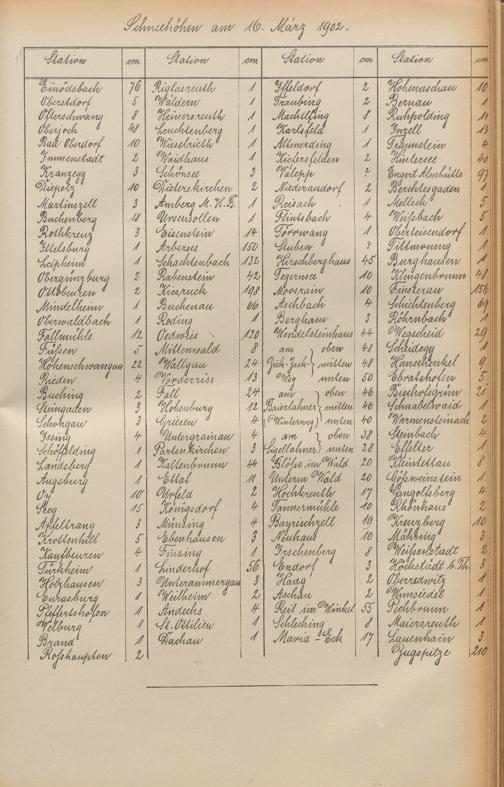 Schneehöhen am 16. März 1902.
Station cm Station cm Station cm Station cm
Einödsbach 76 Riglasreuth 1 Iffeldorf 2 Hohenaschau 10
Oberstdorf 5 Wäldern 1 Traubing 2 Bernau 1
Ofterschwang 8 Heinersreuth 1 Machtlfing 8 Ruhpolding 11
Oberjoch 48 Leuchtenberg 1 Karlsfeld 1 Inzell 13
Bad Oberdorf 10 Wiesbrieth 1 Altenerding 1 Traunstein 4
Immenstadt 2 Waidhaus 1 Kiefersfelden 2 Hintersee 40
Kranzegg 3 Schönsee 3 Valepp Engert Almhütte 97
Diepolz 10 Dieterskirchen 2 Niederaudorf 2 Berchtesgaden 1
Martinszell 3 Amberg M. H. B. 1 Reisach 1 Melleck 5
Buchenberg 18 Ursensollen 1 Flintsbach 4 Weißbach 5
Rothkreuz 3 Eisenstein 14 Törrwang 1 Oberteisendorf 1
Ittelsburg 1 Arbersee 150 Stuben Tittmoning 1
Leipheim 1 Schachtenbach 132 Hirschberghaus 45 Berghausen 1
Obergünzburg 2 Rabenstein 42 Tegernsee 10 Klingenbrunn 48
Ottobeuren 2 Kiesruck 198 Moosrain 10 Finsterau 156
Mindelheim 1 Buchenau 66 Aschbach 4 Schichtenberg 69
Oberwaldbach 1 Roding 1 Bergham 3 Röhrnbach 1
Fallmühle 12 Oedwies 120 Wendelsteinhaus 44 Wegscheid 29
Füßen 5 Mittenwald 8 am oben 48 Scheidegg 1
Hohenschwangau 22 Wallgau 24 Zick-Zack- mitten 48 Hanschenkel 9
Rieden 4 Vorderriss 13 Weg unten 50 Ebratshofen 5
Buching 2 Fall 24 am oben 46 Bischofsgrün 21
Steingaden 3 Hohenburg 12 Baierlahnts mitten 46 Schnabelwaid 1
Schongau 3 Griesen 4 (Winterweg) unten 40 Warmensteinach 2
Issing 4 Untergrainau 4 am oben 38 Steinbach 4
Schöffelding 1 Partenkirchen 3 Sigellahnts unten 28 Effelter 1
Landsberg 1 Kaltenbrunn 44 Blöße im Wald 20 Kleintettau 8
Augsburg 1 Ettal 11 Unterm Wald 20 Gößweinstein 1
Oy 10 Urfeld 2 Hochkreuth 17 Gangolfsberg 4
Steg 15 Königsdorf 4 Tannermühle 10 Rhönhaus 2
Apfeltrang 3 Münsing 4 Bayrischzell 19 Kreuzberg 10
Krottenhill 5 Ebenhausen 3 Neuhaus 10 Mähring 3
Kaufbeuren 4 Füssing 1 Irschenberg 8 Weißenstadt 2
Türkheim 1 Linderhof 56 Endorf 3 Höchstädt b. Th. 3
Holzhausen 3 Unterammergau 3 Haag 2 Oberredwitz 1
Eurasburg 1 Weilheim 2 Aschau 2 Wunsiedel 1
Pfeffertshofen 1 Andechs 4 Reit im Winkel 55 Fichbrunn 1
Velburg 1 St. Ottilien 1 Schleching 8 Maiersreuth 1
Brand 1 Dachau 1 Maria-Eck 17 Lauenhain 3
Roßhaupten 2 Zugspitze 210